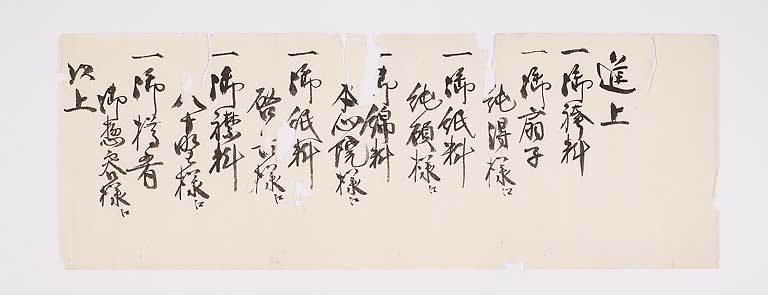 進上
一御袴料
一御扇子
純得様江
一御紙料
純顔様江
一御綿料
本心院様江
一御紙料
啓
様江
一御襟料
八十野様江
一御樽肴
御惣容様江
以上